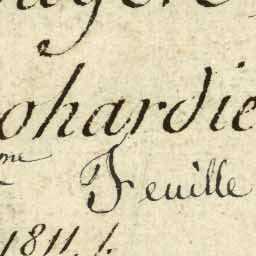 ohardie
me Feuille
1811.